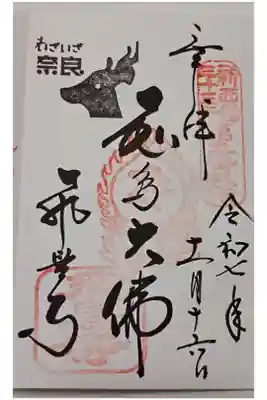 わざいざ
奈良
奉拝
令和七年
十一月十六日
飛鳥大佛
飛鳥寺